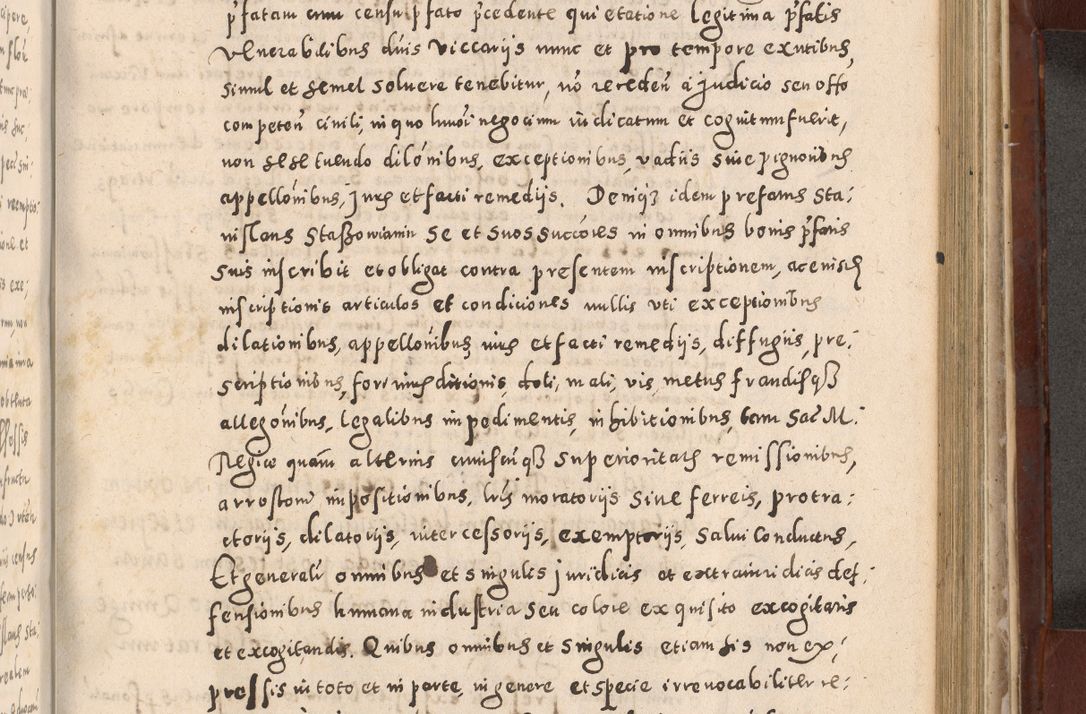 p̄fatam cum censu p̄fato p̄cedente qui etatione legitima p̄fatis
Venerabilibus dn̄is Viccarijs nunc et pro tempore exn̄tibus,
simul et semel soluere tenebitur, nō receden̄ à judicio seu offō
competen̄ civili, in quo huiōi negocium iudicatum et cognitum fuerit,
non se se tuendo dilōnibus, exceptionibus, vadiis siue pignoribus
appellōnibus, juris et facti remedijs. Deniq₃ idem prefatus Sta:
nislaus Staszowianin se et suos succōres in omnibus bonis p̄fatis
suis inscribit et obligat contra presentem inscriptionem, ac eiusd
inscriptionis articulos et condiciones nullis vti exceptionibus
dilationibus, appellōnibus iuris et facti remedijs, diffugiis, pre:
scriptionibus, fori iurisditionis, doli, mali, vis, metus fraudisq₃
allegōnibus, legalibus impedimentis, inhibitionibus, tam Sac̄ M:
Regiæ quam alterius cuiuscunq₃ Superioritatis remissionibus,
arrestorum impositionibus, lr̄is moratorijs Siue ferreis, protra:
ctorijs, dilatorijs, intercessorijs, exemptorijs, Salui Conductus,
Et generalr̄ omnibus et singulis juridicis et extrajuridicis def:
fensionibus humana industria seu colore exquisito excogitatis
et excogitandis. Quibus omnibus et singulis etiam his non ex:
pressis in toto et in parte, in genere et specie irreuocabiliter re: